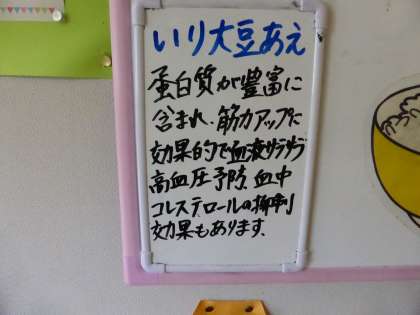 いり大豆あえ
蛋白質が豊富に
含まれ、筋力アップに
効果的で血液サラサラ
高血圧予防、血中
コレステロールの抑制
効果もあります。